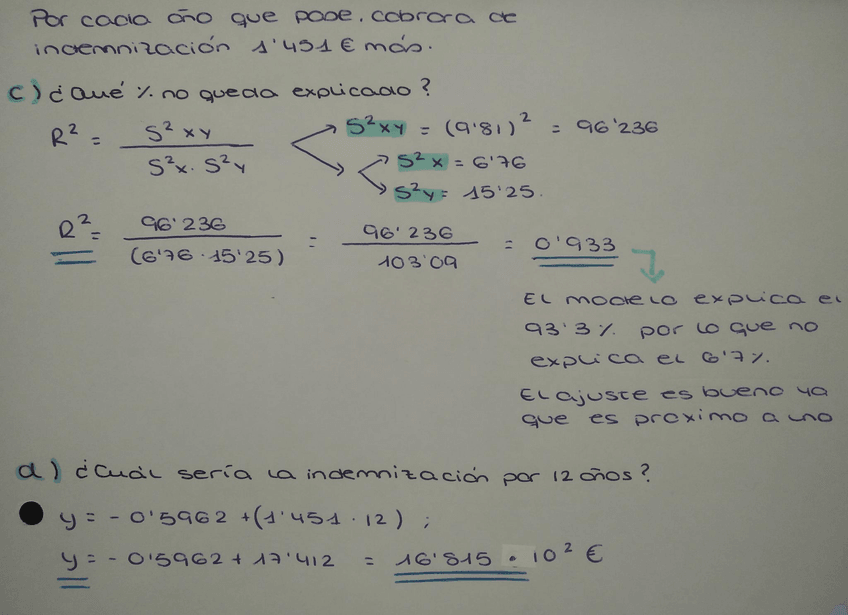 Por cada año que pase, cobrara de
indemnización 1'451 € más.
c) ¿Qué % no queda explicado?
R² = S²xy / S²x · S²y
S²xy = (9'81)² = 96'236
S²x = 6'76
S²y = 15'25.
R² = 96'236 / (6'76 · 15'25) = 96'236 / 103'09 = 0'933
El modelo explica el
93'3% por lo que no
explica el 6'7%.
El ajuste es bueno ya
que es proximo a uno
d) ¿Cuál sería la indemnización por 12 años?
y = - 0'5962 + (1'451 · 12) ;
y = - 0'5962 + 17'412 = 16'815 · 10² €